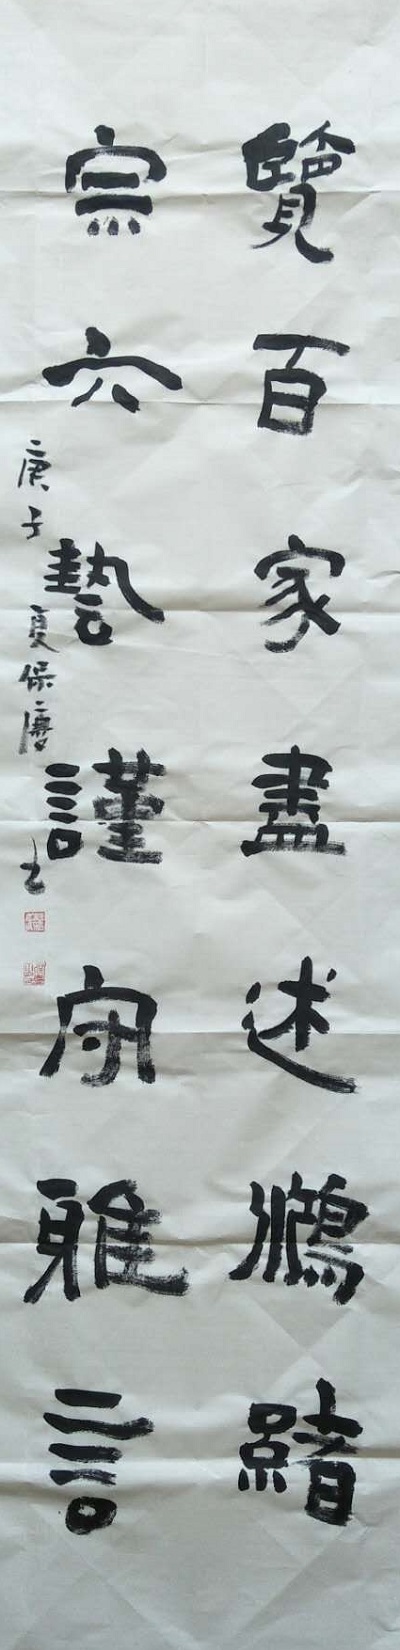 覽百家盡述鴻緒
宗六藝謹守雅言
庚子夏保慶书